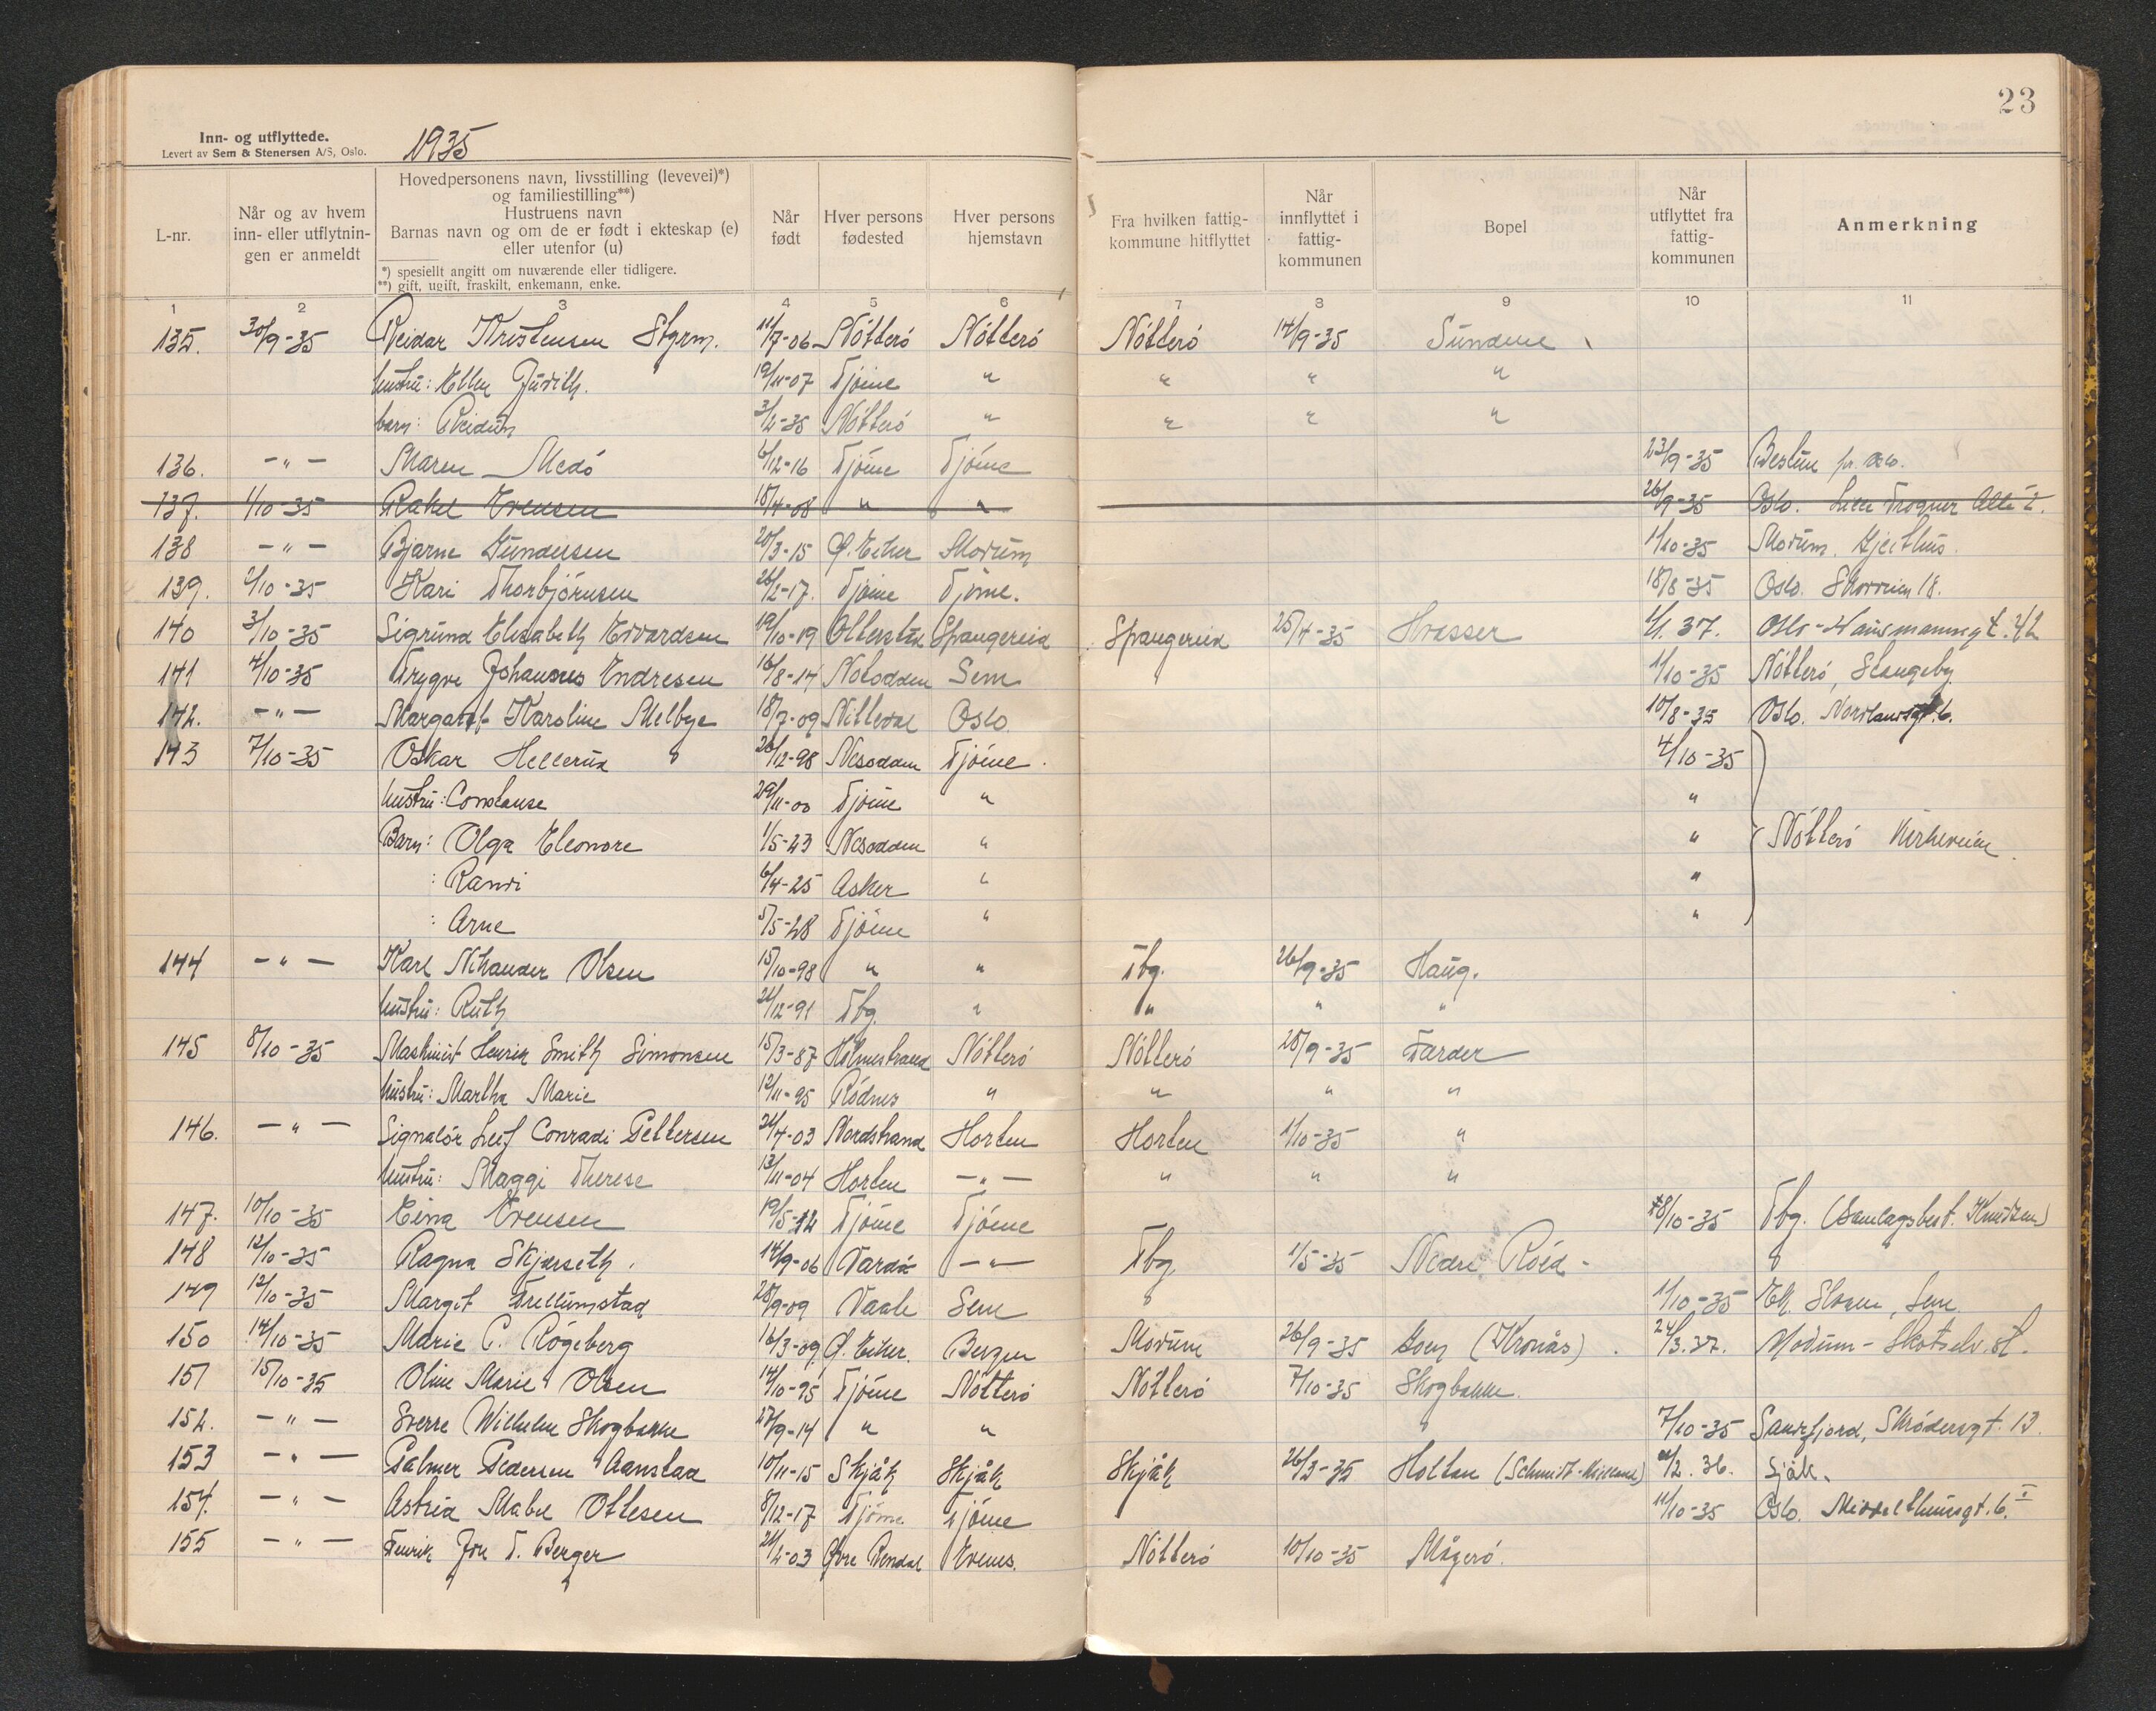 23
Inn- og utflyttede.
Levert av Sem & Stenersen A/S, Oslo.
1935
L-nr.
Når og av hvem inn- eller utflytnin-gen er anmeldt
Hovedpersonens navn, livsstilling (levevei)*) og familiestilling**)
Hustruens navn
Barnas navn og om de er født i ekteskap (e) eller utenfor (u)
*) spesiellt angitt om nuværende eller tidligere.
**) gift, ugift, fraskilt, enkemann, enke.
Når født
Hver persons fødested
Hver persons hjemstavn
Fra hvilken fattig-kommune hitflyttet
Når innflyttet i fattig-kommunen
Bopel
Når utflyttet fra fattig-kommunen
Anmerkning
1 2 3 4 5 6 7 8 9 10 11
135. 30/9-35 Reidar Kristensen Styrm. 11/7-06 Nötterö Nötterö Nötterö 14/9-35 Sundene
hustru: Ellen Judith. 19/11-07 Tjöme " " " "
barn: Reidun 3/2-35 Nötterö " " " "
136. -"- Maren Medö 6/12-16 Tjöme Tjöme 23/9-35 Bestun pr. Oslo.
137. 1/10-35 Rakel Evensen 18/4-08 " " 26/9-35 Oslo. Lille Frogner Allé 2.
138 -"- Bjarne Gundersen 20/3-15 Ö. Eiker Modum 1/10-35 Modum. Gjeithus.
139. 2/10-35 Kari Thorbjörnsen 26/2-17. Tjöme Tjöme. 18/8-35 Oslo. Skovveien 18.
140 3/10-35 Sigrund Elisabeth Edvardsen 19/10-19 Spangereid Spangereid 25/4-35 Hvasser 1/1 37. Oslo - Hausmannsgt.
141 4/10-35 Trygve Johannes Endresen 16/8-14 Notodden Sem 1/10-35 Nötterö, Stangeby
142. -"- Margaret Karoline Melbye 18/7-09 Nittedal Oslo. 10/8-35 Oslo. Nordlandsgt. 6.
143 7/10-35 Oskar Hellerud 28/12-98 Nesodden Tjöme. 4/10-35
hustru: Constanse 29/11-00 Tjöme " "
Barn: Olga Eleonore 1/5-23 Nesodden " " Nötterö Kirkeveien.
: Randi 6/4-25 Asker " "
: Arne 5/5-28 Tjöme " "
144 -"- Karl Nikander Olsen 15/10-98 " " Tbg. 26/9-35 Haug.
hustru: Ruth 21/12-91 Tbg. " " " "
145 8/10-35 Maskinist Henrik Smith Simonsen 15/3-87 Holmestrand Nötterö Nötterö 28/9-35 Færder
hustru: Martha Marie 12/11-95 Rödnes " " " "
146. -"- Signalör Leif Conradi Pettersen 21/4-03 Nordstrand Horten Horten 1/10-35 "
hustru: Maggi Therese 13/11-04 Horten -"- " " "
147. 10/10-35 Eina Evensen 19/5-12 Tjöme Tjöme 8/10-35 Tbg. (Samlagsbest. Knudsen)
148 12/10-35 Ragna Skjærseth. 14/9-06 Vardö -"- Tbg 1/5-35 Nedre Röed -
149 12/10-35 Margit Trellumstad 28/9-09 Vaale Sem 1/10-35 Ek. Skogen, Sem
150 14/10-35 Marie C. Rögeberg 16/3-09. Ö. Eiker. Bergen Modum 26/9-35 Goen (Kronås). 24/3.37. Modum - Skotselv. st.
151 15/10-35 Oline Marie Olsen 14/10-95 Tjöme Nötterö Nötterö 7/10-35 Skogbakke.
152. -"- Sverre Wilhelm Skogbakke 27/9-14 " " 7/10-35 Sandefjord, Skrödersgt. 13.
153 -"- Palmer Pedersen Aanstad 10/11-15 Skjåk Skjåk Skjåk 26/3-35 Holtan (Schmidt-) /2.36. Sjåk.
154. -"- Astrid Mabel Ottesen 8/12-17 Tjöme Tjöme 11/10-35 Oslo. Middelthunsgt. 6. I
155 -"- Fenrik Jon T. Berger 21/2-03 Övre Rendal Evenes. Nötterö 10/10-35 Mågerö.